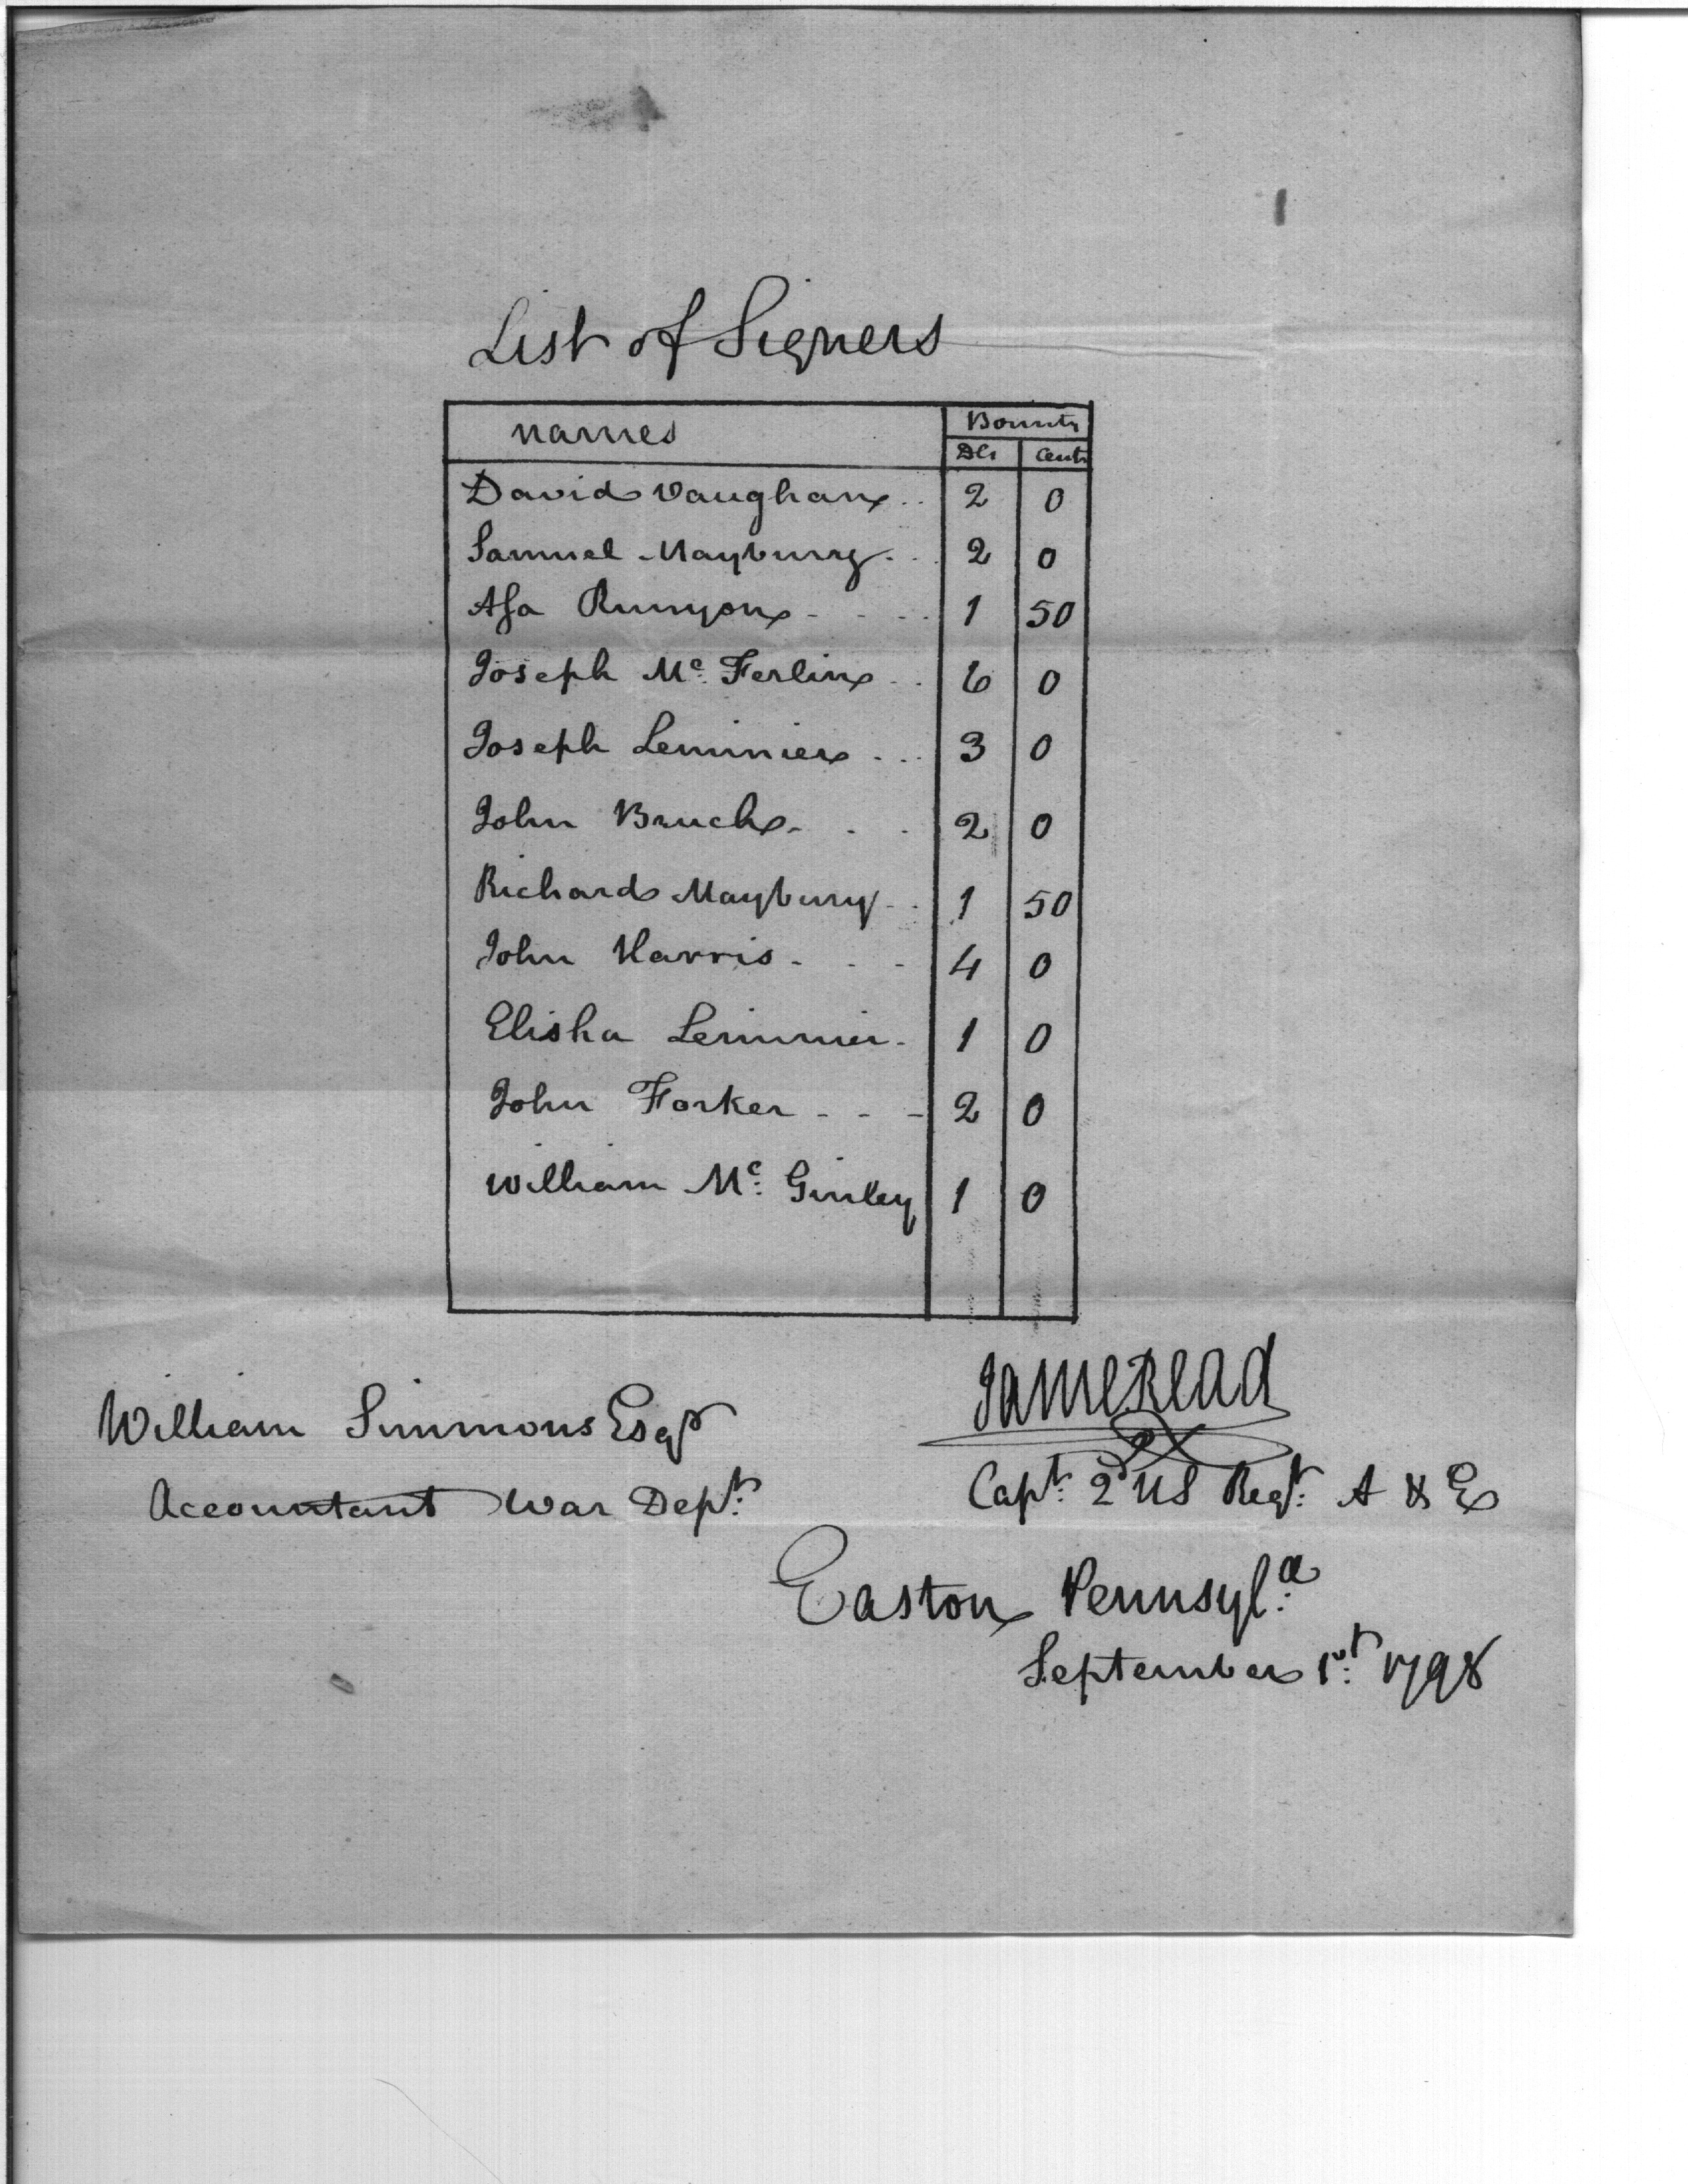 List of Signers
names Bounty
Dls Cents
David Vaughan 2 0
Samuel Mayburry 2 0
Asa Runyon 1 50
Joseph Mc. Ferlin 6 0
Joseph Lemmier 3 0
John Bruch 2 0
Richard Maybury 1 50
John Harris 4 0
Elisha Lemmier 1 0
John Forker 2 0
William Mc. Ginley 1 0
James Read
William Simmons Esqr
Capt. 2d US Regt. A & E
Accountant War Dept.
Easton Pennsyla.
September 1st. 1798